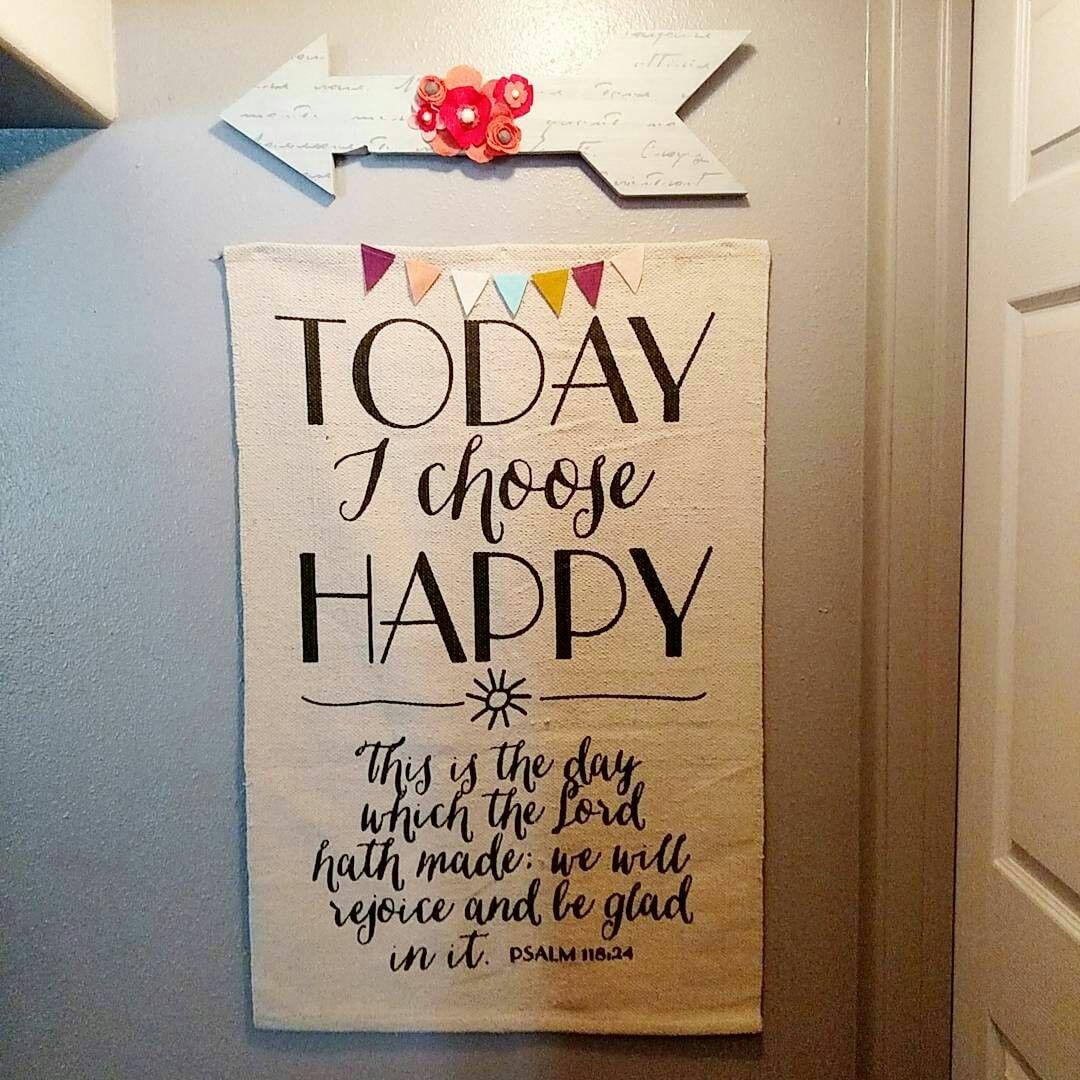 TODAY
I choose
HAPPY
This is the day
which the Lord
hath made: we will
rejoice and be glad
in it. PSALM 118:24